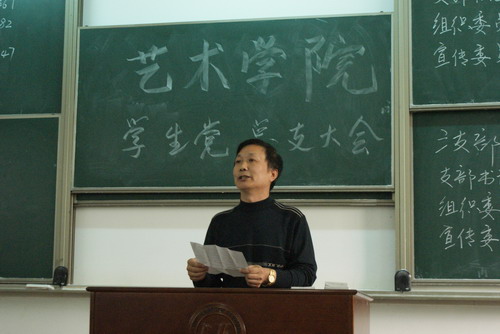 82
47
艺术学院
学生党总支大会
组织委
宣传委
三支部
支部书
组织委
宣传委